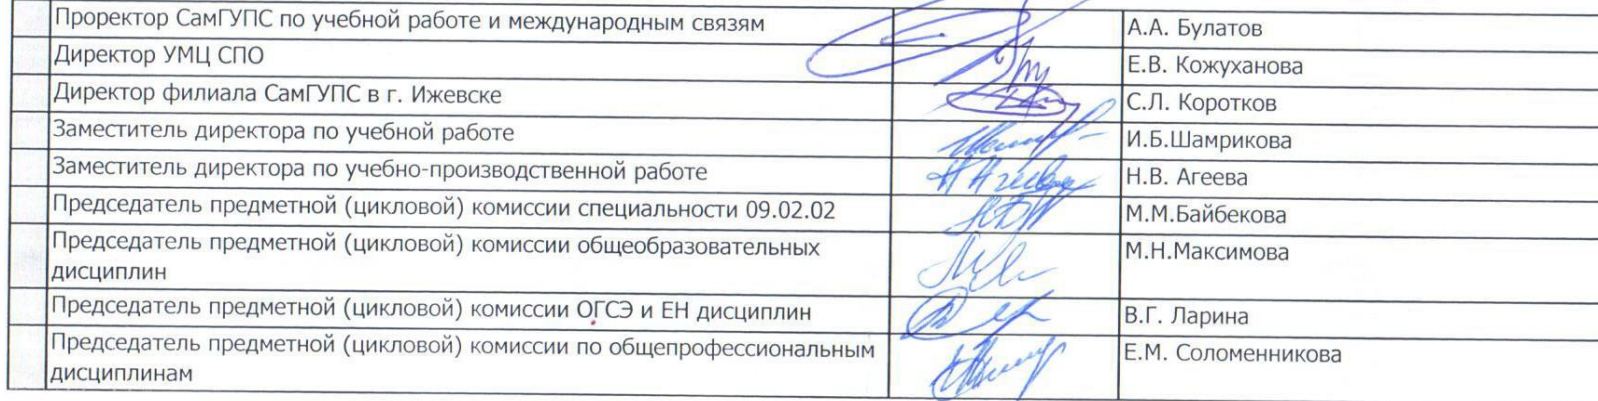 Проректор СамГУПС по учебной работе и международным связям А.А. Булатов
Директор УМЦ СПО Е.В. Кожуханова
Директор филиала СамГУПС в г. Ижевске С.Л. Коротков
Заместитель директора по учебной работе И.Б.Шамрикова
Заместитель директора по учебно-производственной работе Н.В. Агеева
Председатель предметной (цикловой) комиссии специальности 09.02.02 М.М.Байбекова
Председатель предметной (цикловой) комиссии общеобразовательных М.Н.Максимова
дисциплин
Председатель предметной (цикловой) комиссии ОГСЭ и ЕН дисциплин В.Г. Ларина
Председатель предметной (цикловой) комиссии по общепрофессиональным Е.М. Соломенникова
дисциплинам